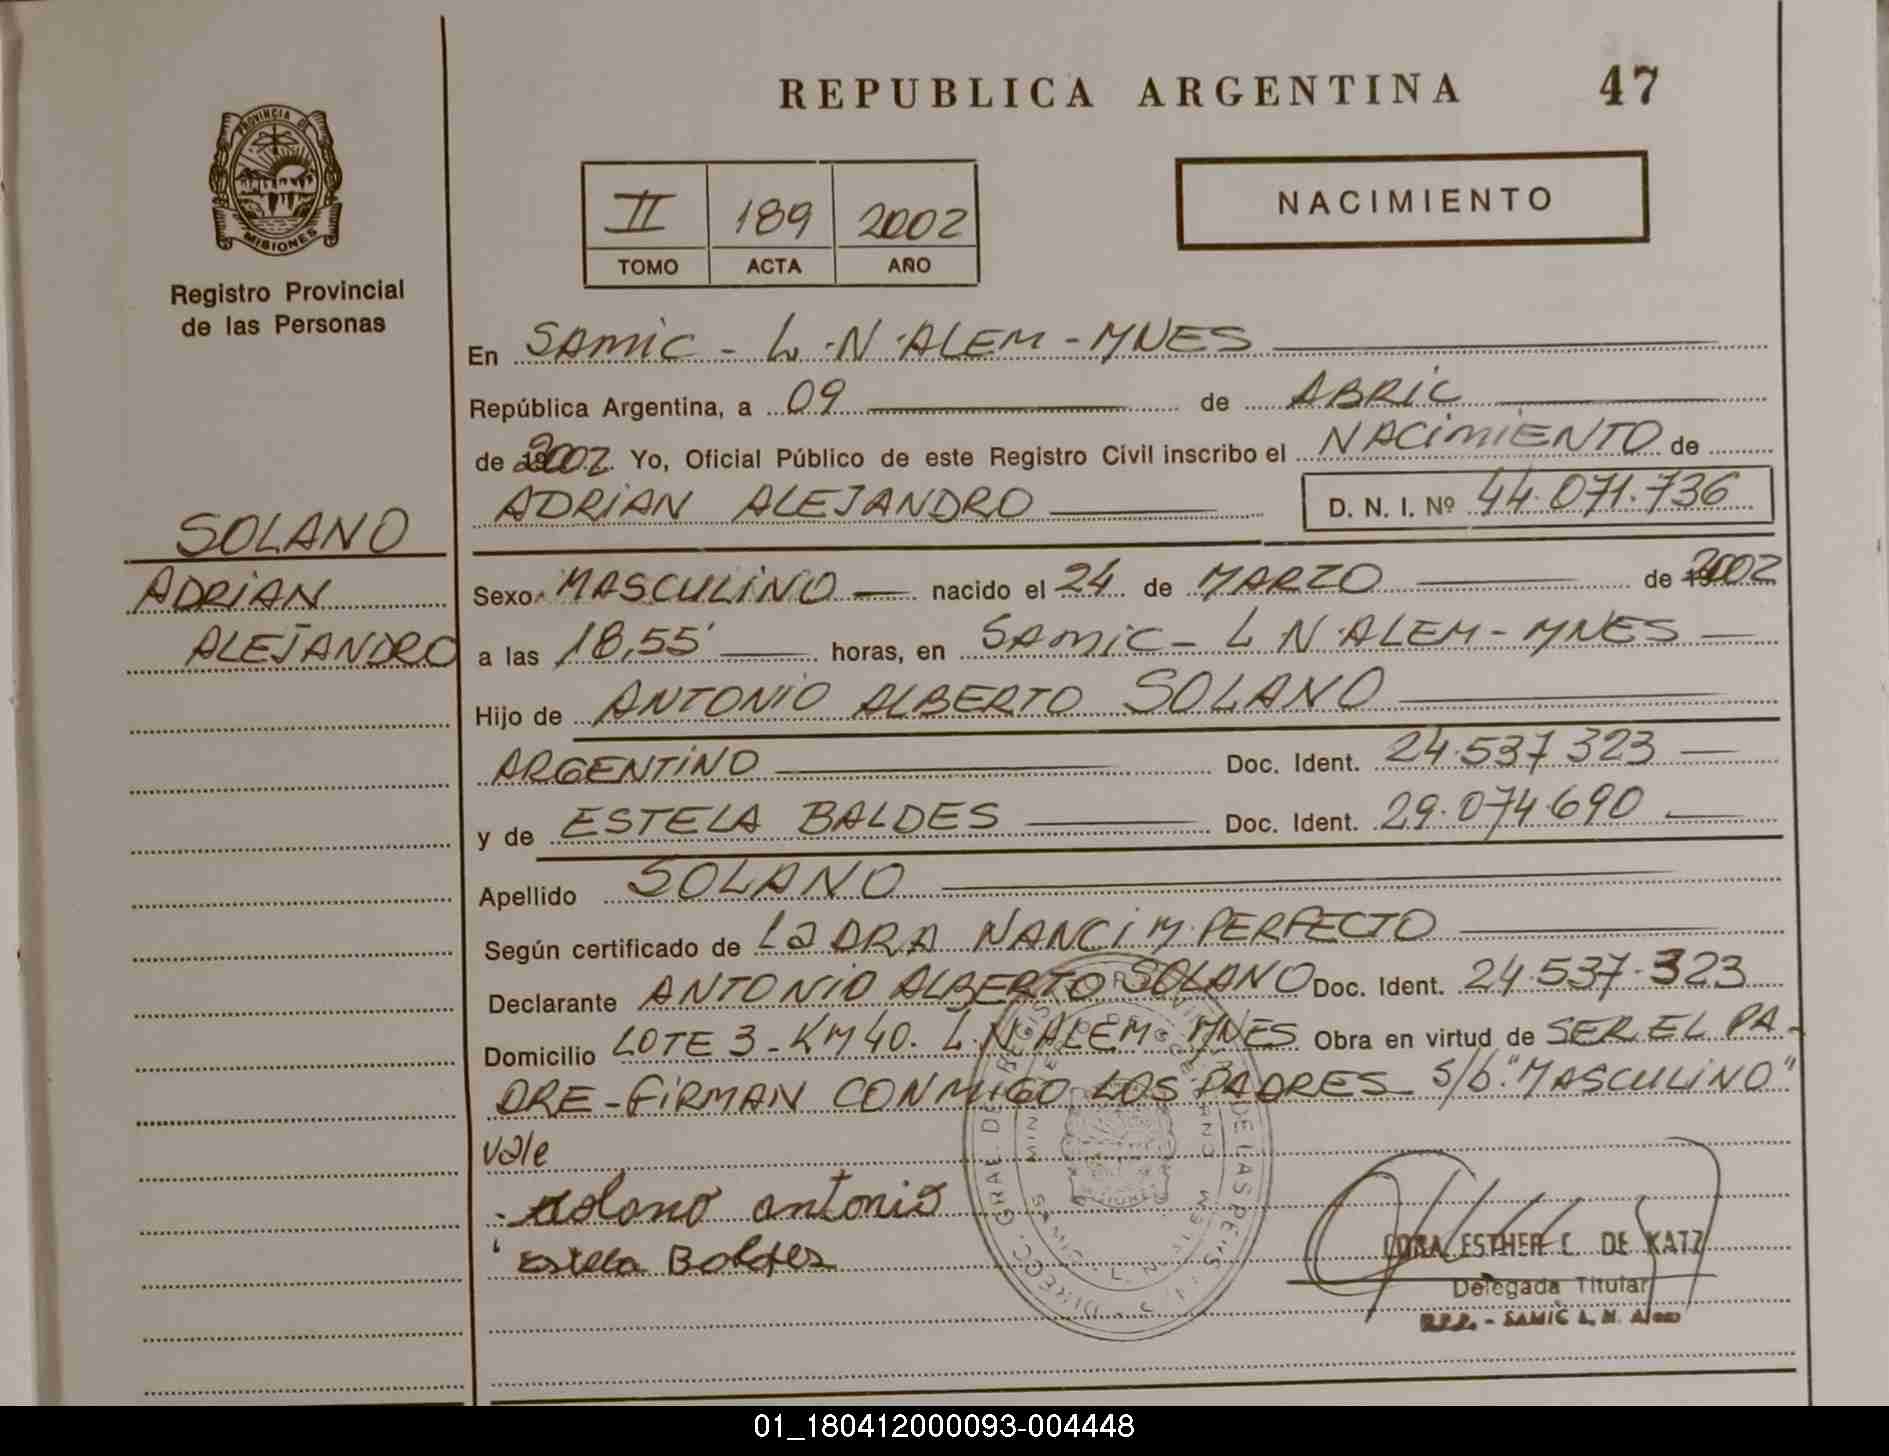 REPUBLICA ARGENTINA 47
PROVINCIA DE
MISIONES
Registro Provincial
de las Personas
II 189 2002
TOMO ACTA AÑO
NACIMIENTO
En SAMIC - L.N.ALEM - MNES
República Argentina, a 09 de ABRIL
de 2002 Yo, Oficial Público de este Registro Civil inscribo el NACIMIENTO de
ADRIAN ALEJANDRO D. N. I. Nº 44.071.736
SOLANO
ADRIAN
ALEJANDRO
Sexo MASCULINO nacido el 24 de MARZO de 2002
a las 18,55' horas, en SAMIC - L N.ALEM - MNES
Hijo de ANTONIO ALBERTO SOLANO
ARGENTINO Doc. Ident. 24.537 323
y de ESTELA BALDES Doc. Ident. 29.074.690
Apellido SOLANO
Según certificado de La DRA NANCI M. PERFECTO
Declarante ANTONIO ALBERTO SOLANO Doc. Ident. 24.537.323
Domicilio LOTE 3 - KM 40. L.N.ALEM MNES Obra en virtud de SER EL PA-
DRE - FIRMAN CONMIGO LOS PADRES S/b "MASCULINO"
vale
solano antonio
Estela Baldes
CORA ESTHER C. DE KATZ
Delegada Titular
R.P.P. - SAMIC L. N. Alem
01_180412000093-004448